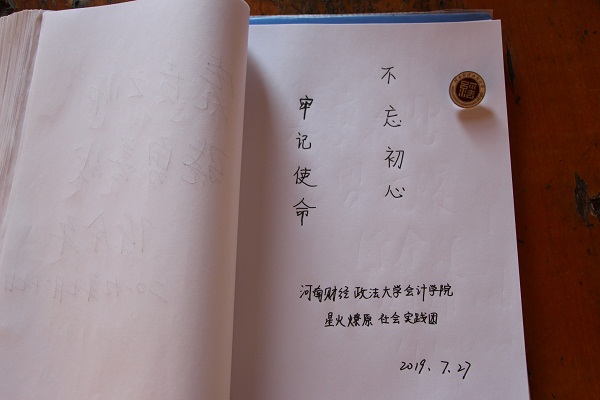 不忘初心
牢记使命
河南财经政法大学会计学院
星火燎原社会实践团
2019.7.27